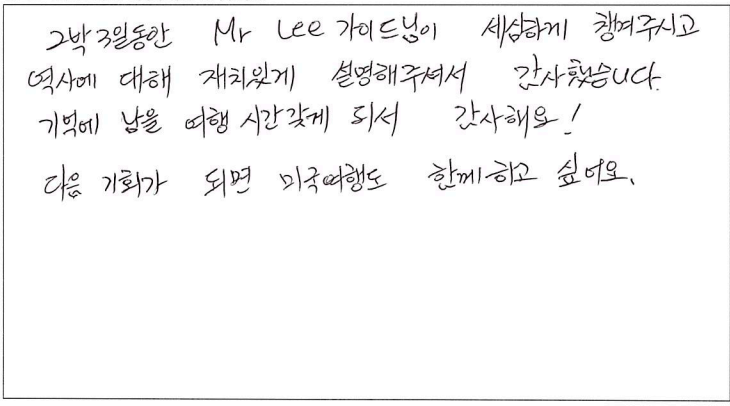 2박 3일동안 Mr Lee 가이드님이 세심하게 챙겨주시고
역사에 대해 재치있게 설명해주셔서 감사했습니다.
기억에 남을 여행 시간갖게 되서 감사해요!
다음 기회가 되면 미국여행도 함께하고 싶어요.